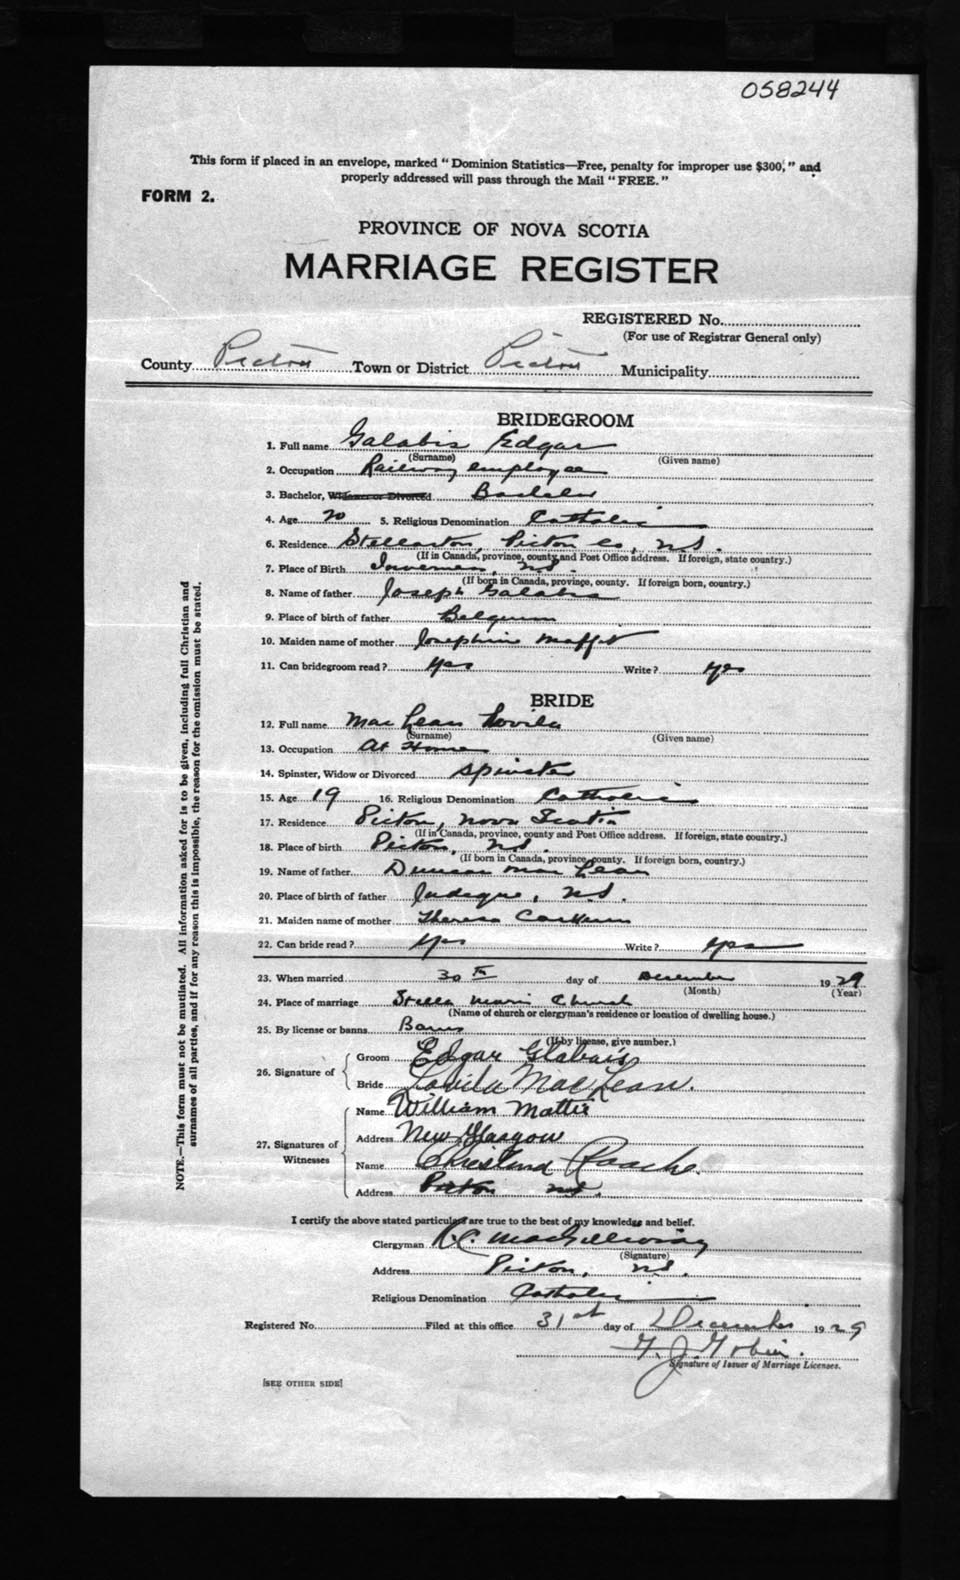 058244
This form if placed in an envelope, marked "Dominion Statistics—Free, penalty for improper use $300," and
properly addressed will pass through the Mail "FREE."
FORM 2.
PROVINCE OF NOVA SCOTIA
MARRIAGE REGISTER
REGISTERED No.
(For use of Registrar General only)
County Pictou Town or District Pictou Municipality
BRIDEGROOM
1. Full name Galabis Edgar
(Surname) (Given name)
2. Occupation Railway employee
3. Bachelor, Widower or Divorced Bachelor
4. Age 20 5. Religious Denomination Catholic
6. Residence Stellarton, Pictou Co, N.S.
(If in Canada, province, county and Post Office address. If foreign, state country.)
7. Place of Birth Inverness, N.S.
(If born in Canada, province, county. If foreign born, country.)
8. Name of father Joseph Galabis
9. Place of birth of father Belgium
10. Maiden name of mother Josephine Moffat
11. Can bridegroom read? yes Write? yes
BRIDE
12. Full name MacLean Lovila
(Surname) (Given name)
13. Occupation At Home
14. Spinster, Widow or Divorced Spinster
15. Age 19 16. Religious Denomination Catholic
17. Residence Pictou, Nova Scotia
(If in Canada, province, county and Post Office address. If foreign, state country.)
18. Place of birth Pictou, N.S.
(If born in Canada, province, county. If foreign born, country.)
19. Name of father Duncan MacLean
20. Place of birth of father Judique, N.S.
21. Maiden name of mother Theresa
22. Can bride read? yes Write? yes
23. When married 30th day of December 1929
(Month) (Year)
24. Place of marriage Stella Maris Church
(Name of church or clergyman's residence or location of dwelling house.)
25. By license or banns Banns
(If by license, give number.)
26. Signature of
Groom Edgar Glabais
Bride Lovila MacLean.
27. Signatures of Witnesses
Name William Mattie
Address New Glasgow
Name Roache.
Address Pictou N.S.
I certify the above stated particulars are true to the best of my knowledge and belief.
Clergyman R.C. MacGillivray
(Signature)
Address Pictou, N.S.
Religious Denomination Catholic
Registered No. Filed at this office 31st day of December 1929
G. J.
Signature of Issuer of Marriage Licenses.
[SEE OTHER SIDE]
NOTE.—This form must not be mutilated. All information asked for is to be given, including full Christian and
surnames of all parties, and if for any reason this is impossible, the reason for the omission must be stated.